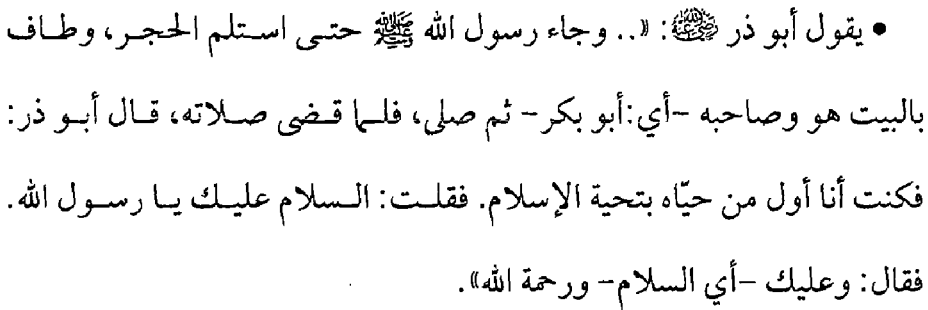 • يقول أبو ذر رضي الله عنه: «.. وجاء رسول الله ﷺ حتى استلم الحجر، وطاف
بالبيت هو وصاحبه -أي: أبو بكر- ثم صلى، فلما قضى صلاته، قال أبو ذر:
فكنت أنا أول من حيّاه بتحية الإسلام. فقلت: السلام عليك يا رسول الله.
فقال: وعليك -أي السلام- ورحمة الله».